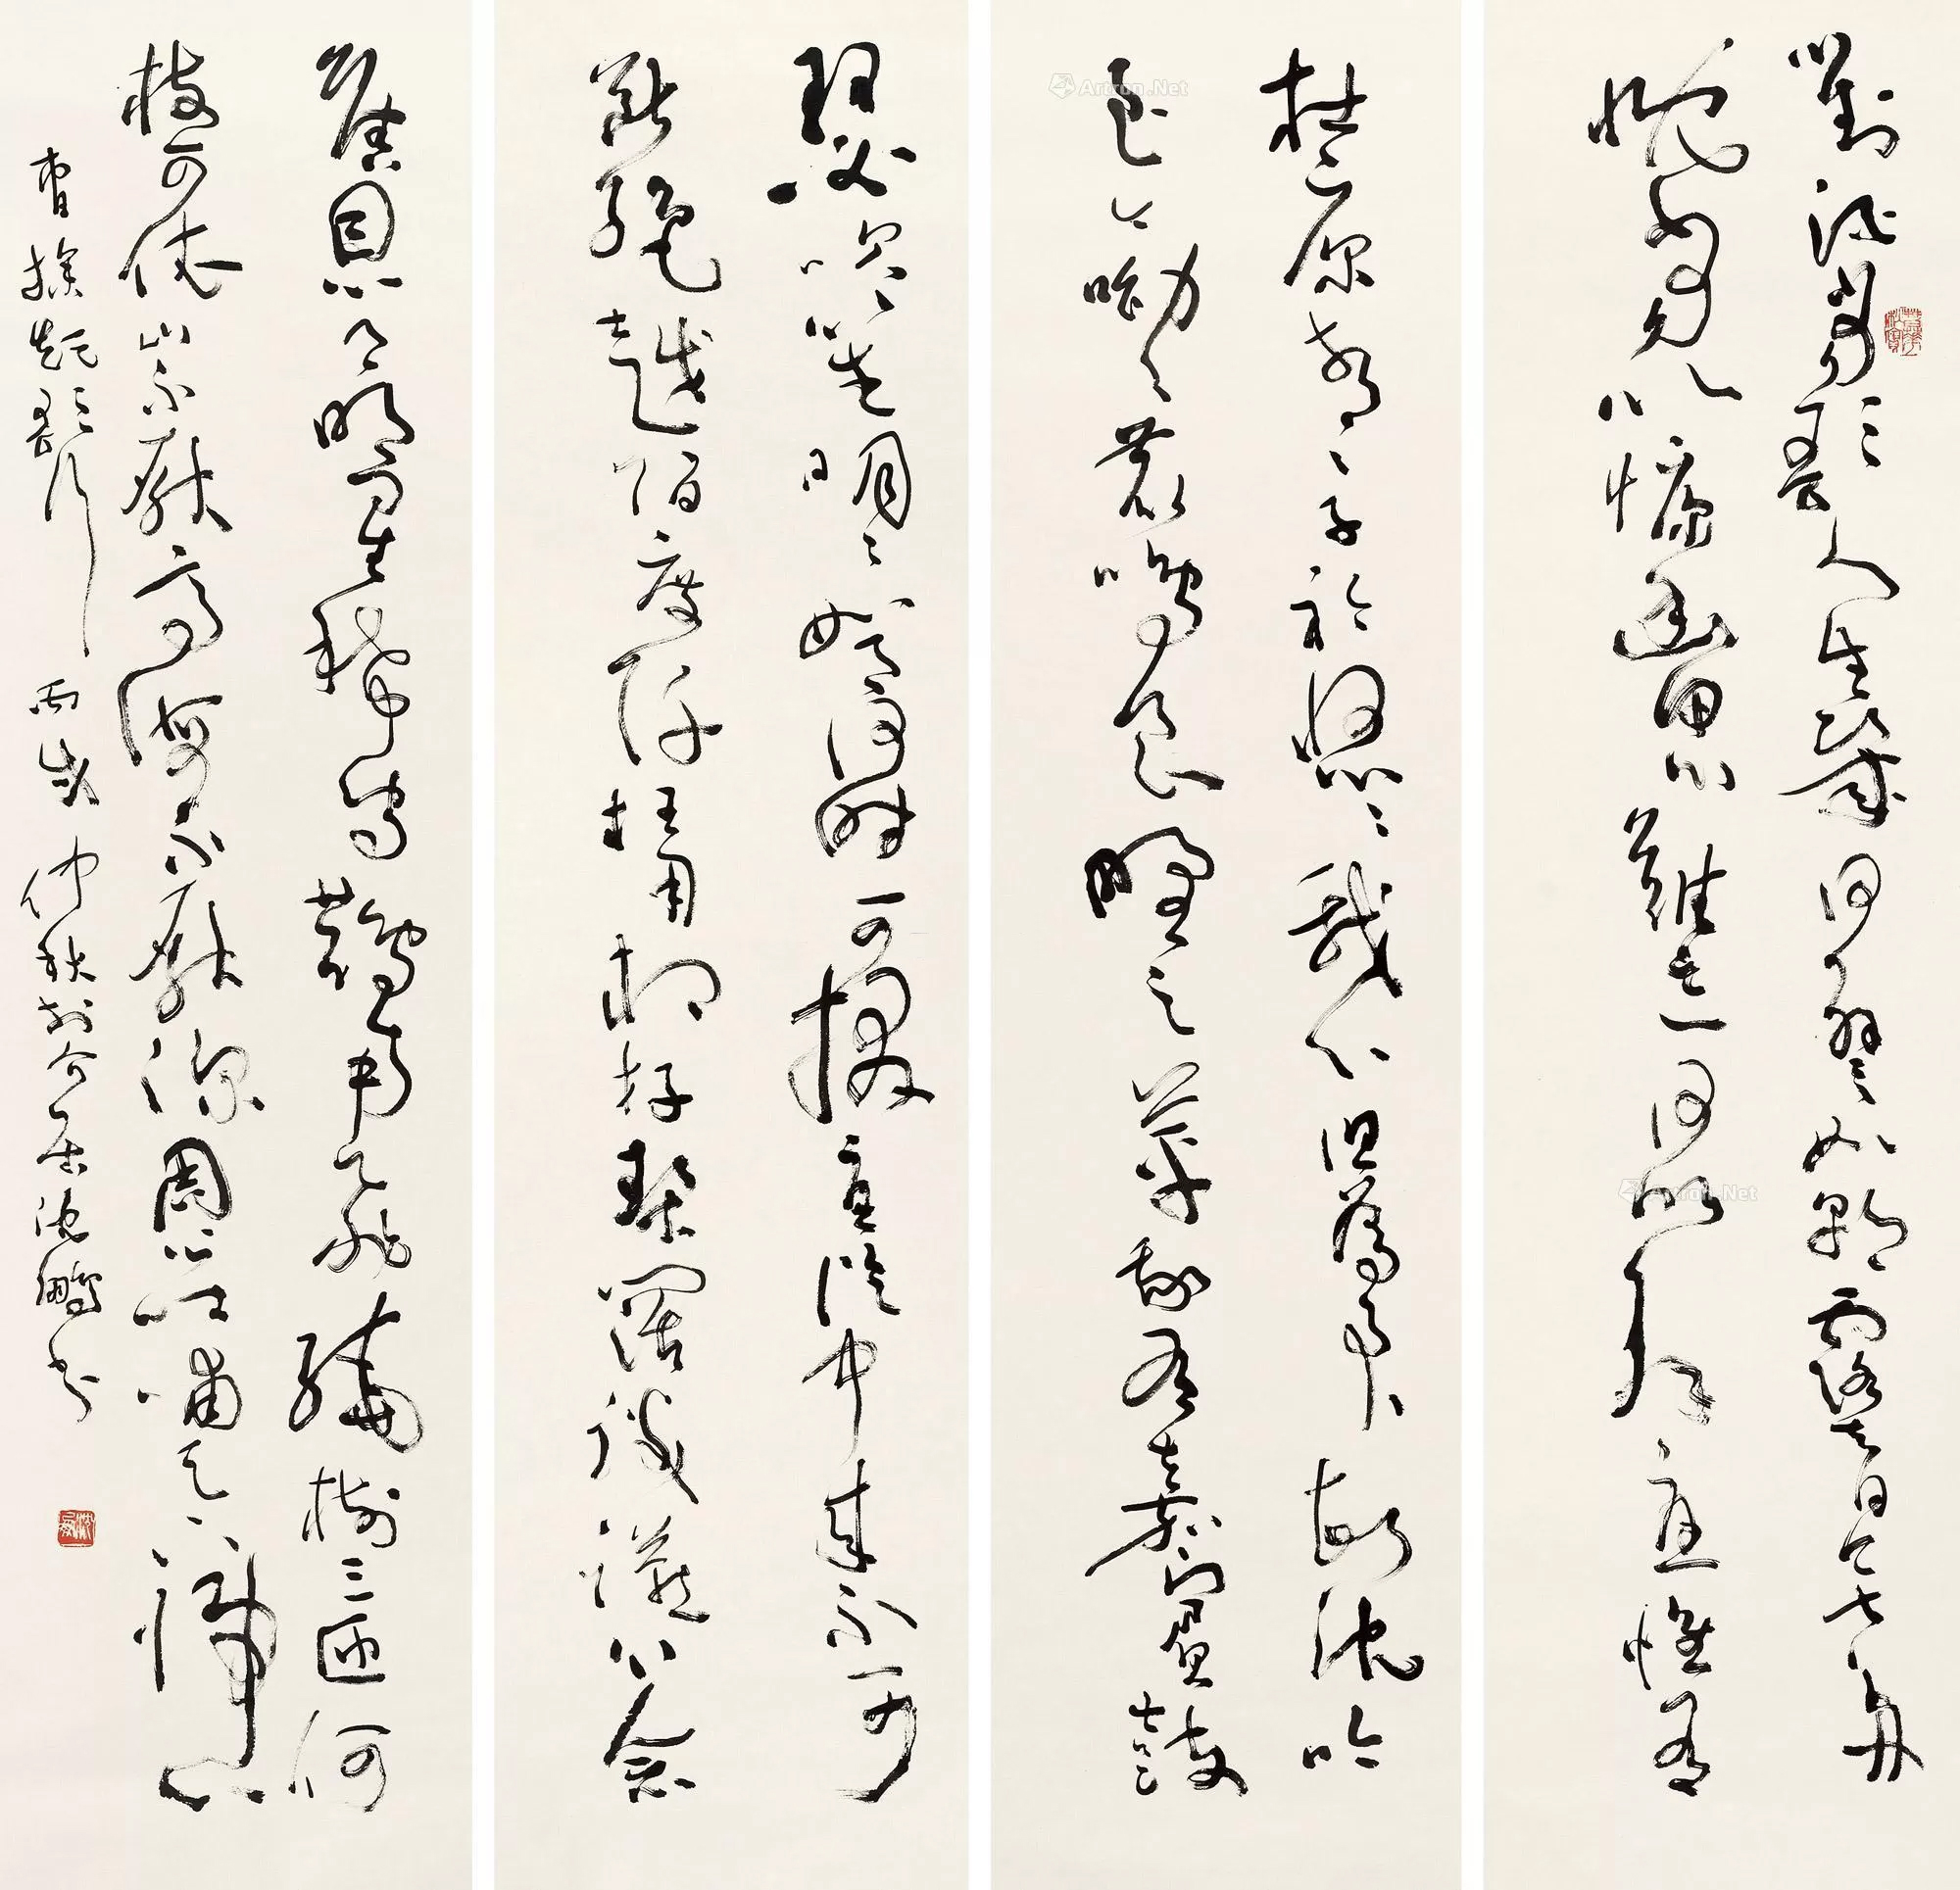 對酒當歌人生幾何譬如朝露去日苦多
慨當以慷幽思難忘何以解憂惟有
杜康青〻子衿悠〻我心但為君故沈吟
至今呦〻鹿鳴食野之苹我有嘉賓鼓
瑟吹笙明〻如月何時可掇憂從中來不可
斷絕越陌度阡枉用相存契闊談讌心念
舊恩月明星稀烏鵲南飛繞樹三匝何
枝可依山不厭高海不厭深周公吐哺天下歸心
曹操短歌行 丙戌仲秋於介居沈鵬書
沈鵬
Artron.Net
Artron.Net